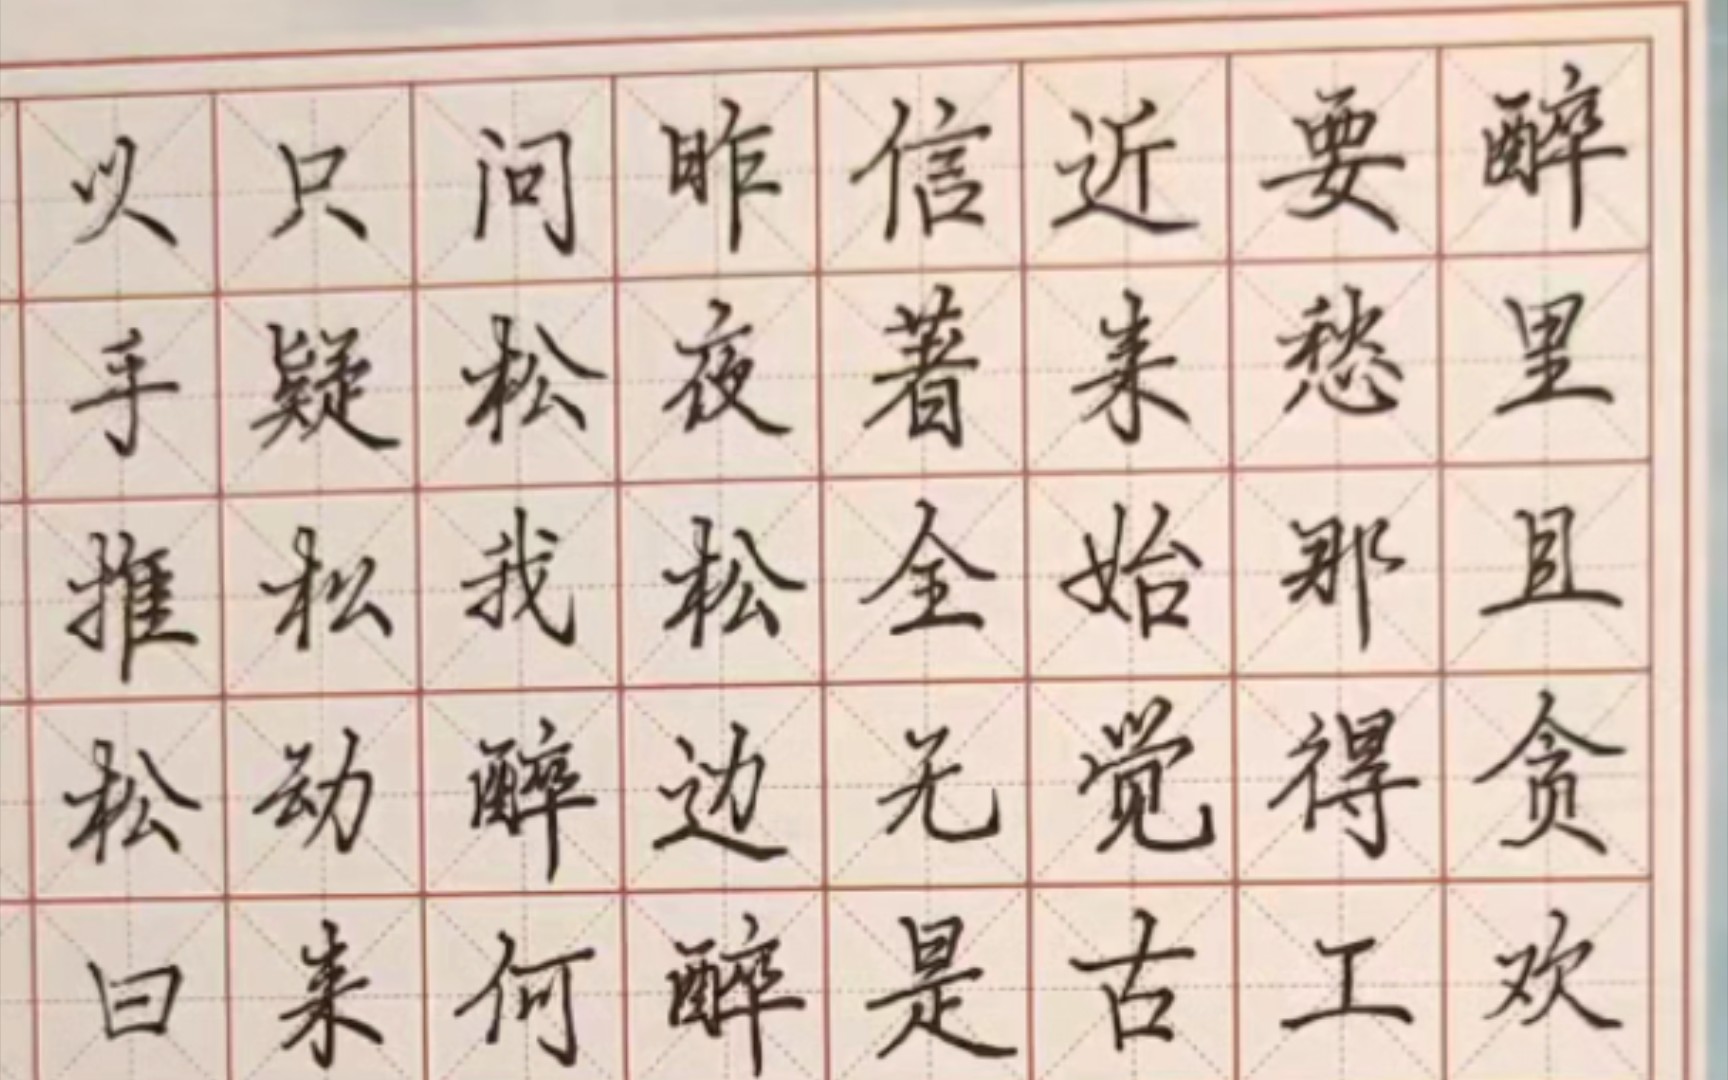 醉里且贪欢
要愁那得工
近来始觉古
信著全无是
昨夜松边醉
问松我醉何
只疑松动来
以手推松曰